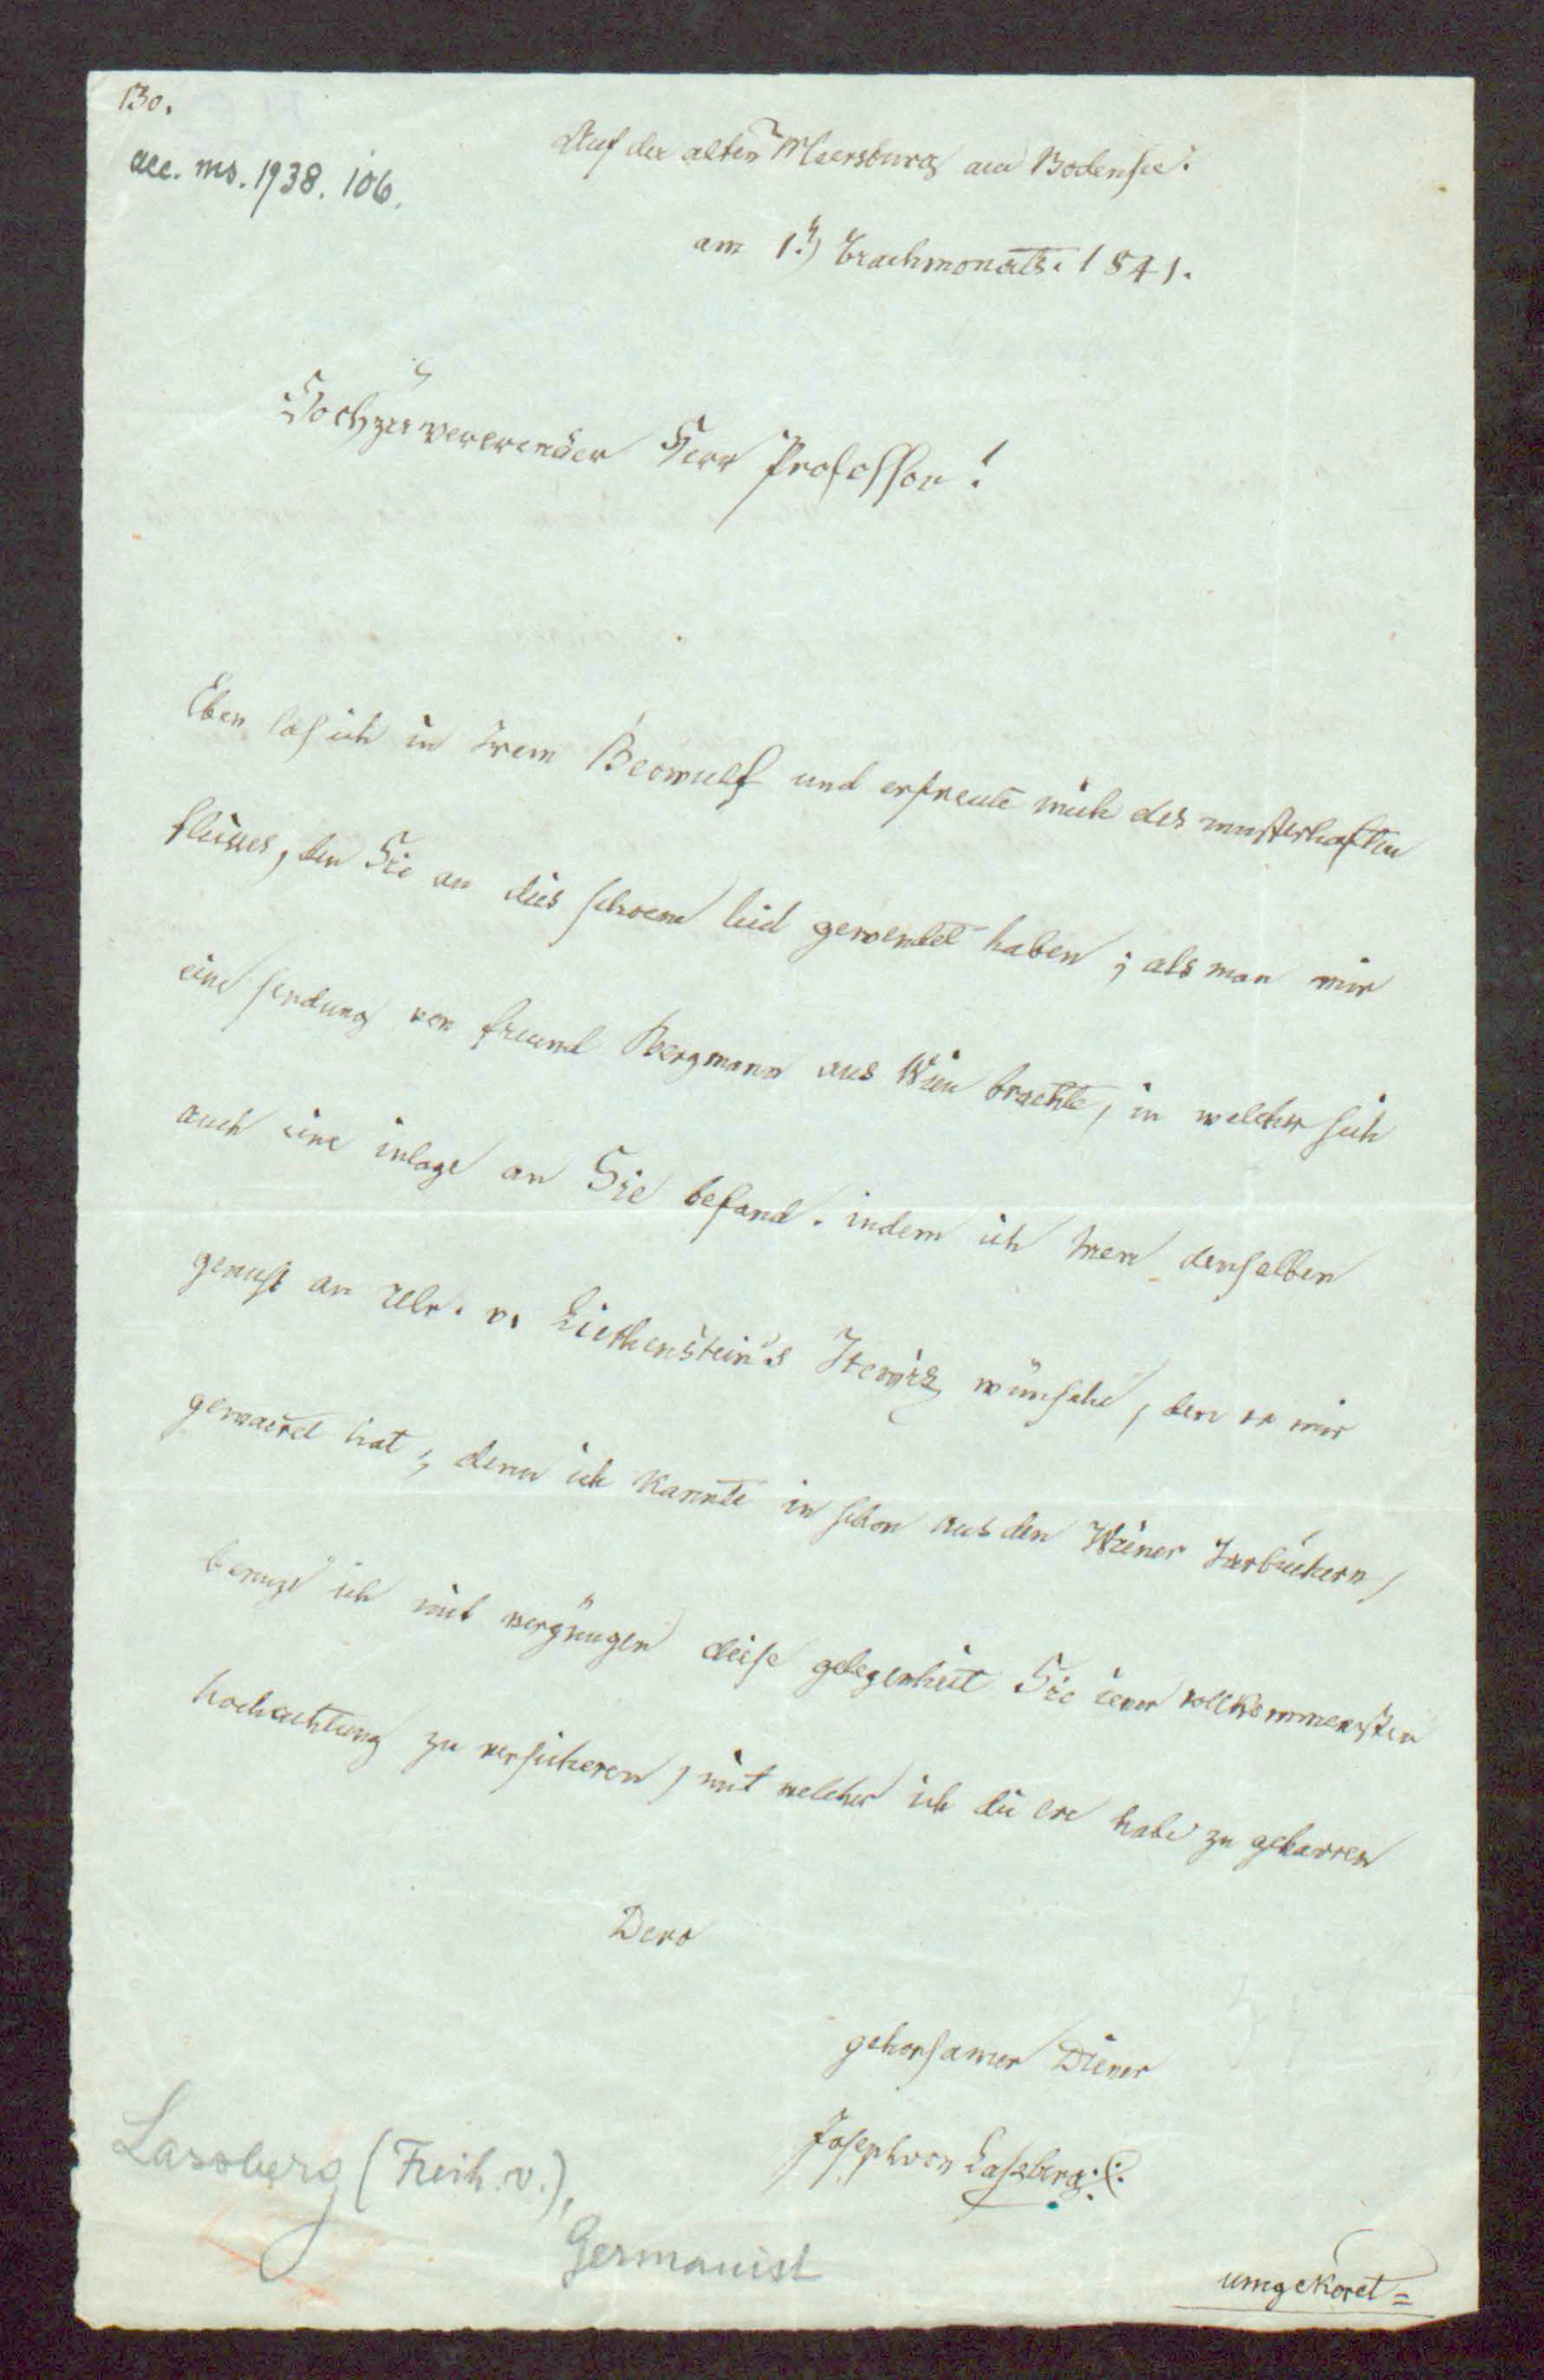 130.
acc. ms. 1938. 106.
Auf der alten Meersburg am Bodensee.
am 1. brachmonats. 1841.
Hochzuvererender Herr Professor!
Eben las ich in Irem Beowulf und erfreute mich des musterhaften
fleisses, den Sie an dies schoene lied gewendet haben; als man mir
eine sendung von freund Bergmann aus Wien brachte, in welcher sich
auch eine inlage an Sie befand. indem ich Inen denselben
genuss an Ulr. v. Liechenstein's Itewiz wünsche, den er mir
gewaeret hat; denn ich kannte in schon aus den Wiener Jarbüchern,
benuze ich mit vergnügen diese gelegenheit Sie iener vollkommensten
hochachtung zu versicheren, mit welcher ich die ere habe zu geharren
Dero
gehorsamer Diener
Joseph von Laszberg.
Lassberg (Freih. v.),
Germanist
umgekeret=